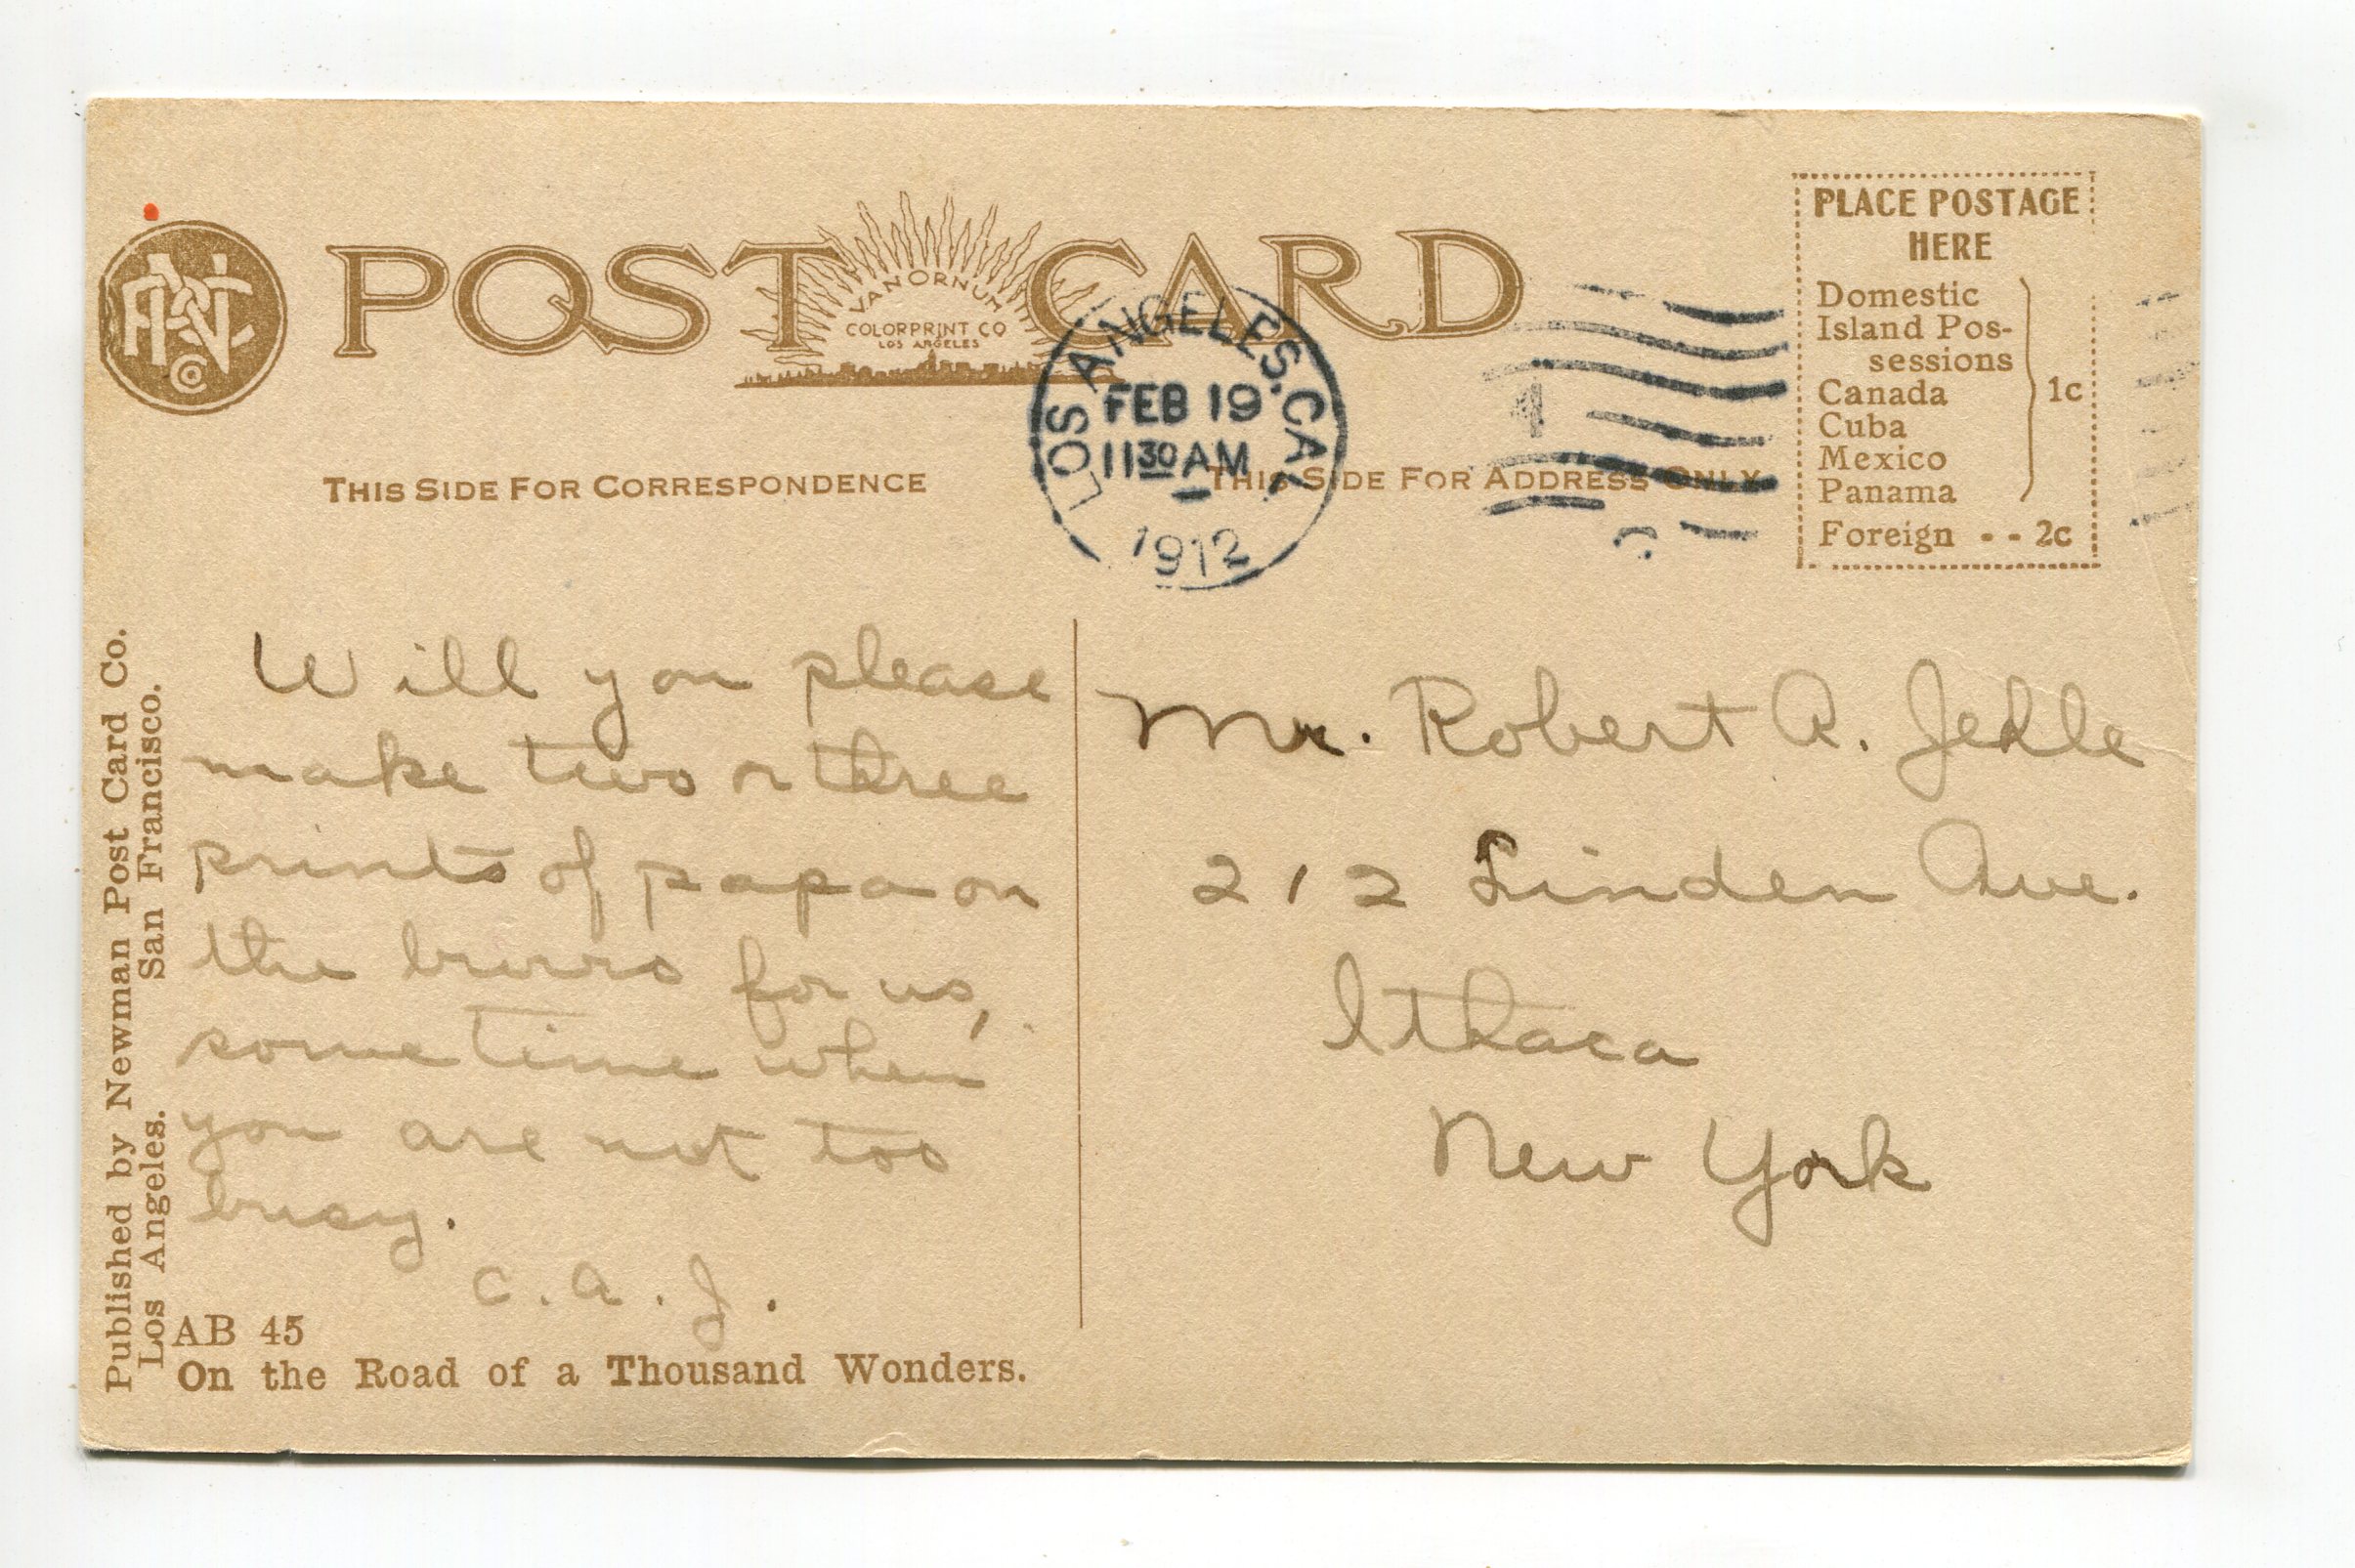 POST CARD
VAN ORNUM
COLORPRINT CO
LOS ANGELES
PNC
Co
PLACE POSTAGE
HERE
Domestic
Island Pos-
sessions
Canada
Cuba
Mexico
Panama
1c
Foreign - - 2c
LOS ANGELES, CAL.
FEB 19
11 30 AM
1912
THIS SIDE FOR CORRESPONDENCE
THIS SIDE FOR ADDRESS ONLY
Will you please
make two or three
prints of papa on
the burros for us,
some time when
you are not too
busy.
C. A. J.
Mr. Robert A. Jehle
212 Linden Ave.
Ithaca
New York
Published by Newman Post Card Co.
Los Angeles. San Francisco.
AB 45
On the Road of a Thousand Wonders.